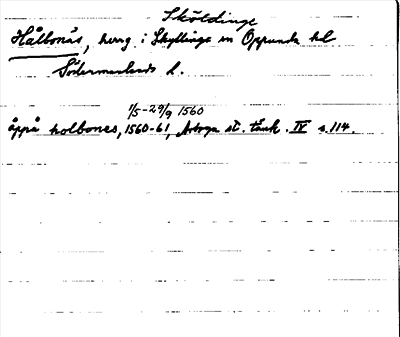 Sköldinge
Hålbonäs, herrg i Skyllinge sn Oppunda hd
Södermanlands l.
1/5-29/9 1560
åppå holbones, 1560-61, Arboga st. tänk. IV s. 114.